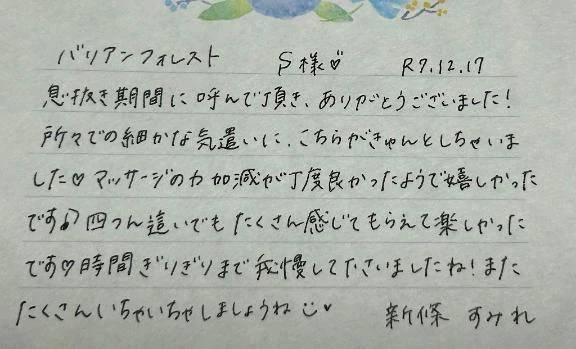 バリアンフォレスト S様♡ R7.12.17
息抜き期間に呼んで頂き、ありがとうございました!
所々での細かな気遣いに、こちらがきゅんとしちゃいま
した♡マッサージの力加減が丁度良かったようで嬉しかった
です♪四つん這いでもたくさん感じてもらえて楽しかった
です♡時間ぎりぎりまで我慢して下さいましたね!また
たくさんいちゃいちゃしましょうね☺♥ 新條 すみれ